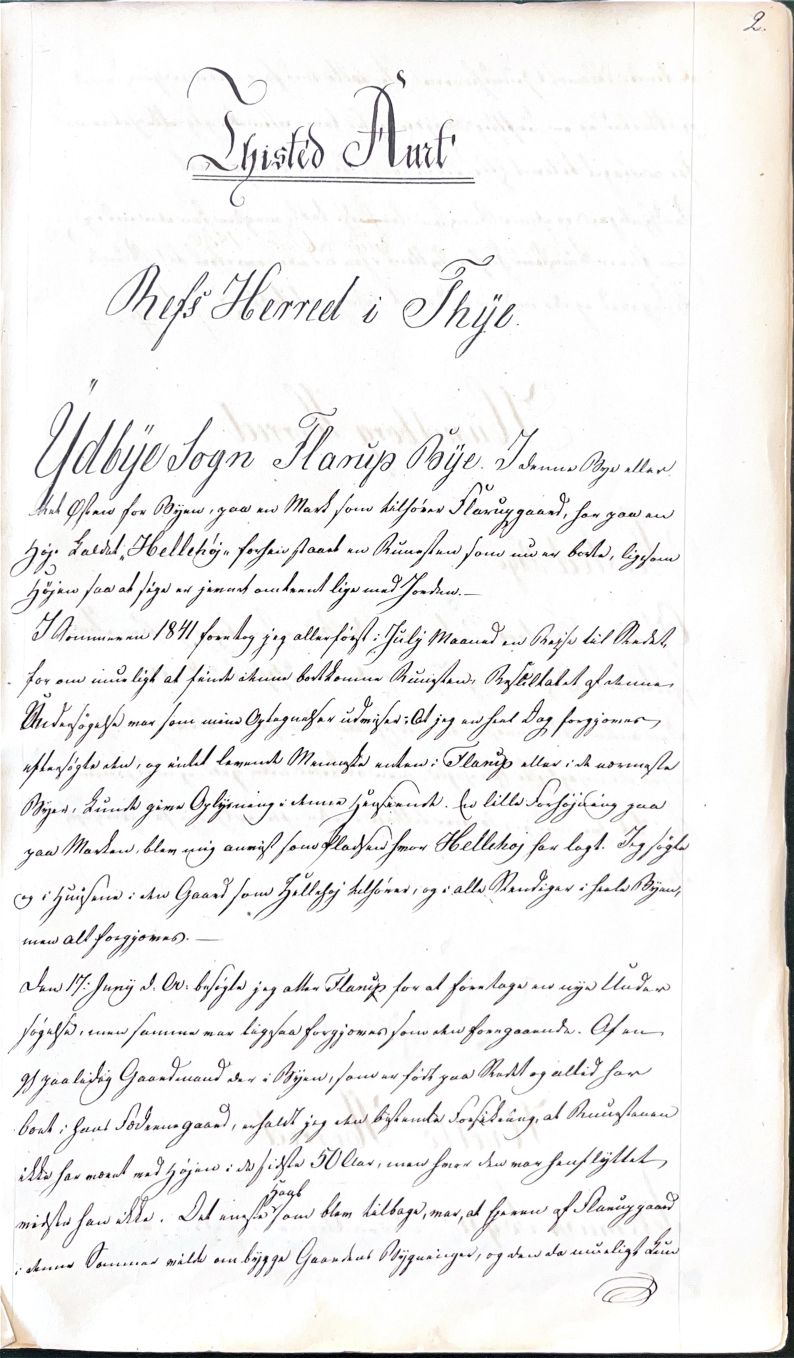 2.
Thisted Amt
Refs Herred i Thÿe.
Ydbÿe Sogn Flarup Bÿe. I denne Bye eller
Østen for Byen, paa en Mark som tilhører Flarupgaard, har paa en
Høje kaldet „Hellehøj„ forhen staaet en Runesten som nu er borte, ligesom
Højen saa at sige er jevnet omtrent lige med Jorden.—
I Sommeren 1841 foretog jeg allerførst i July Maaned en Rejse til Stedet,
for om mueligt at finde denne bortkomne Runesten. Resultatet af denne
Undersøgelse var som mine Optegnelser udviser: At jeg en heel Dag forgjæves
eftersøgte den, og intet levende Menneske enten i Flarup eller i de nærmeste
Byer, kunde give Oplysning i denne Henseende. En lille Forhøjning paa
paa Marken, blev mig anvist som Pladsen hvor Hellehøj har lagt. Jeg søgte
og i Huusene i den Gaard som Hellehøj tilhører, og i alle Stendiger i heele Byen,
men alt forgjæves.—
Den 17: Juny d. A: besøgte jeg atter Flarup for at foretage en nye Under
søgelse, men samme var ligesaa forgjæves som den foregaaende. Af en
paalidelig Gaardmand der i Byen, som er født paa Stedet og altid har
boet i hans Fædrenegaard, erholdt jeg den bestemte Forsikring, at Runestenen
ikke har været ved Højen i de sidste 50 Aar, men hvor den var henflyttet,
vidste han ikke. Det eneste Haab som blev tilbage, var, at Herren af Flarupgaard
i denne Sommer vilde ombygge Gaardens Bygninger, og den da mueligt kun